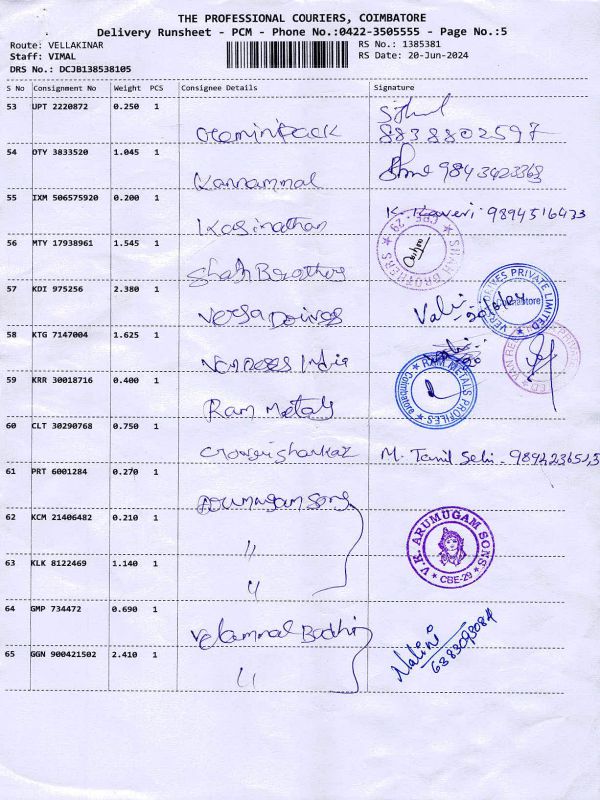 THE PROFESSIONAL COURIERS, COIMBATORE
Delivery Runsheet - PCM - Phone No.:0422-3505555 - Page No.:5
Route: VELLAKINAR RS No.: 1385381
Staff: VIMAL RS Date: 20-Jun-2024
DRS No.: DCJB138538105
S No Consignment No Weight PCS Consignee Details Signature
53 UPT 2220872 0.250 1
8838802597
54 DTY 3833520 1.045 1
Kannammal 9843423363
55 IXM 506575920 0.200 1
Kasinathan K. Kaveri 9894516473
56 MTY 17938961 1.545 1
Shah Brothers SHAH BROTHERS CBE-29
57 KDI 975256 2.380 1
Versa Drives Valli VERSA DRIVES PRIVATE LIMITED Coimbatore
58 KTG 7147004 1.625 1
India
59 KRR 30018716 0.400 1
Ram Metals RAM METALS PROFILES Coimbatore
60 CLT 30290768 0.750 1
Gowrishankar M. Tamil Selvi
61 PRT 6001284 0.270 1
Arumugam Sons
62 KCM 21406482 0.210 1
" V.K. ARUMUGAM SONS CBE-29
63 KLK 8122469 1.140 1
"
64 GMP 734472 0.690 1
Velammal Bodhi Nalini
6383093084
65 GGN 900421502 2.410 1
"